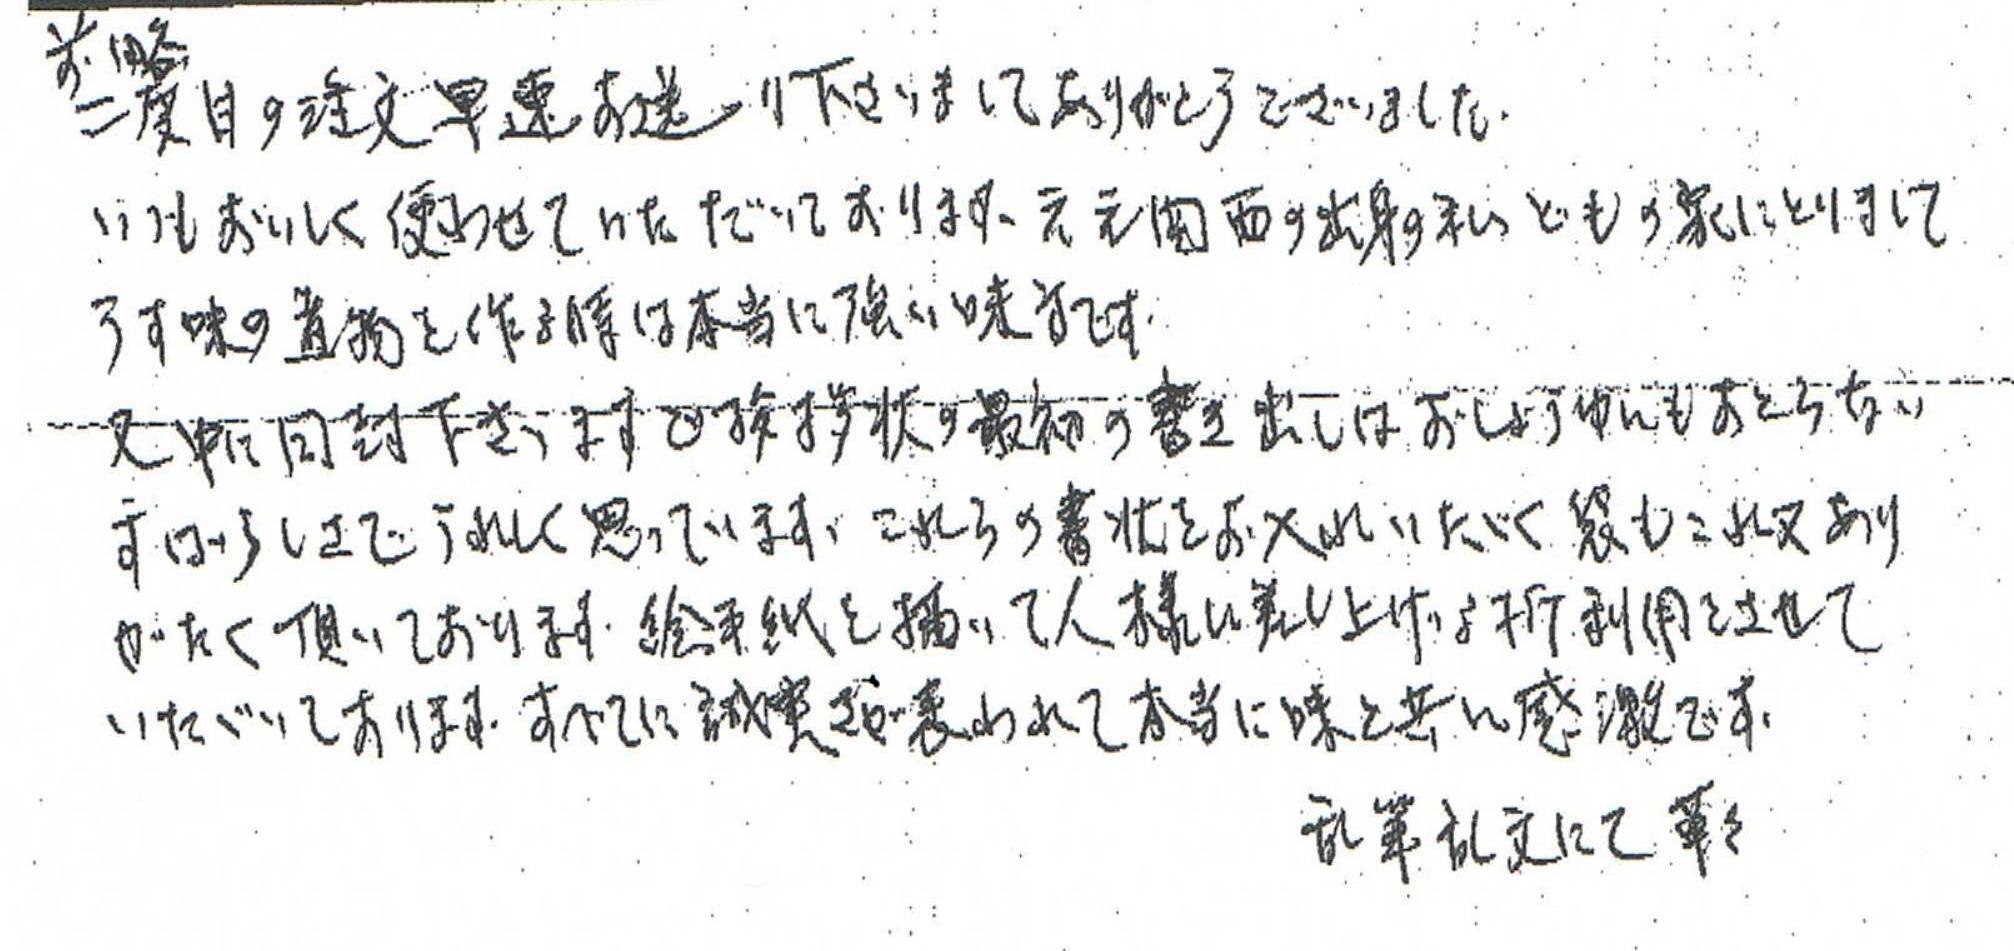 前略
二度目の注文早速お送り下さいましてありがとうございました.
いつもおいしく使わせていただいております. 元元関西の出身の私どもの家にとりまして
うす味の煮物を作る時は本当に強い味方です.
又中に同封下さいますご挨拶状の最初の書き出しはおしょうゆにもおとらない
すばらしさでうれしく思っています. これらの書状をお入れいただく袋もこれ又あり
がたく頂いております. 絵手紙を描いて人様に差し上げる折利用させて
いただいております. すべてに誠実さが表われて本当に味と共に感激です.
乱筆乱文にて 草々